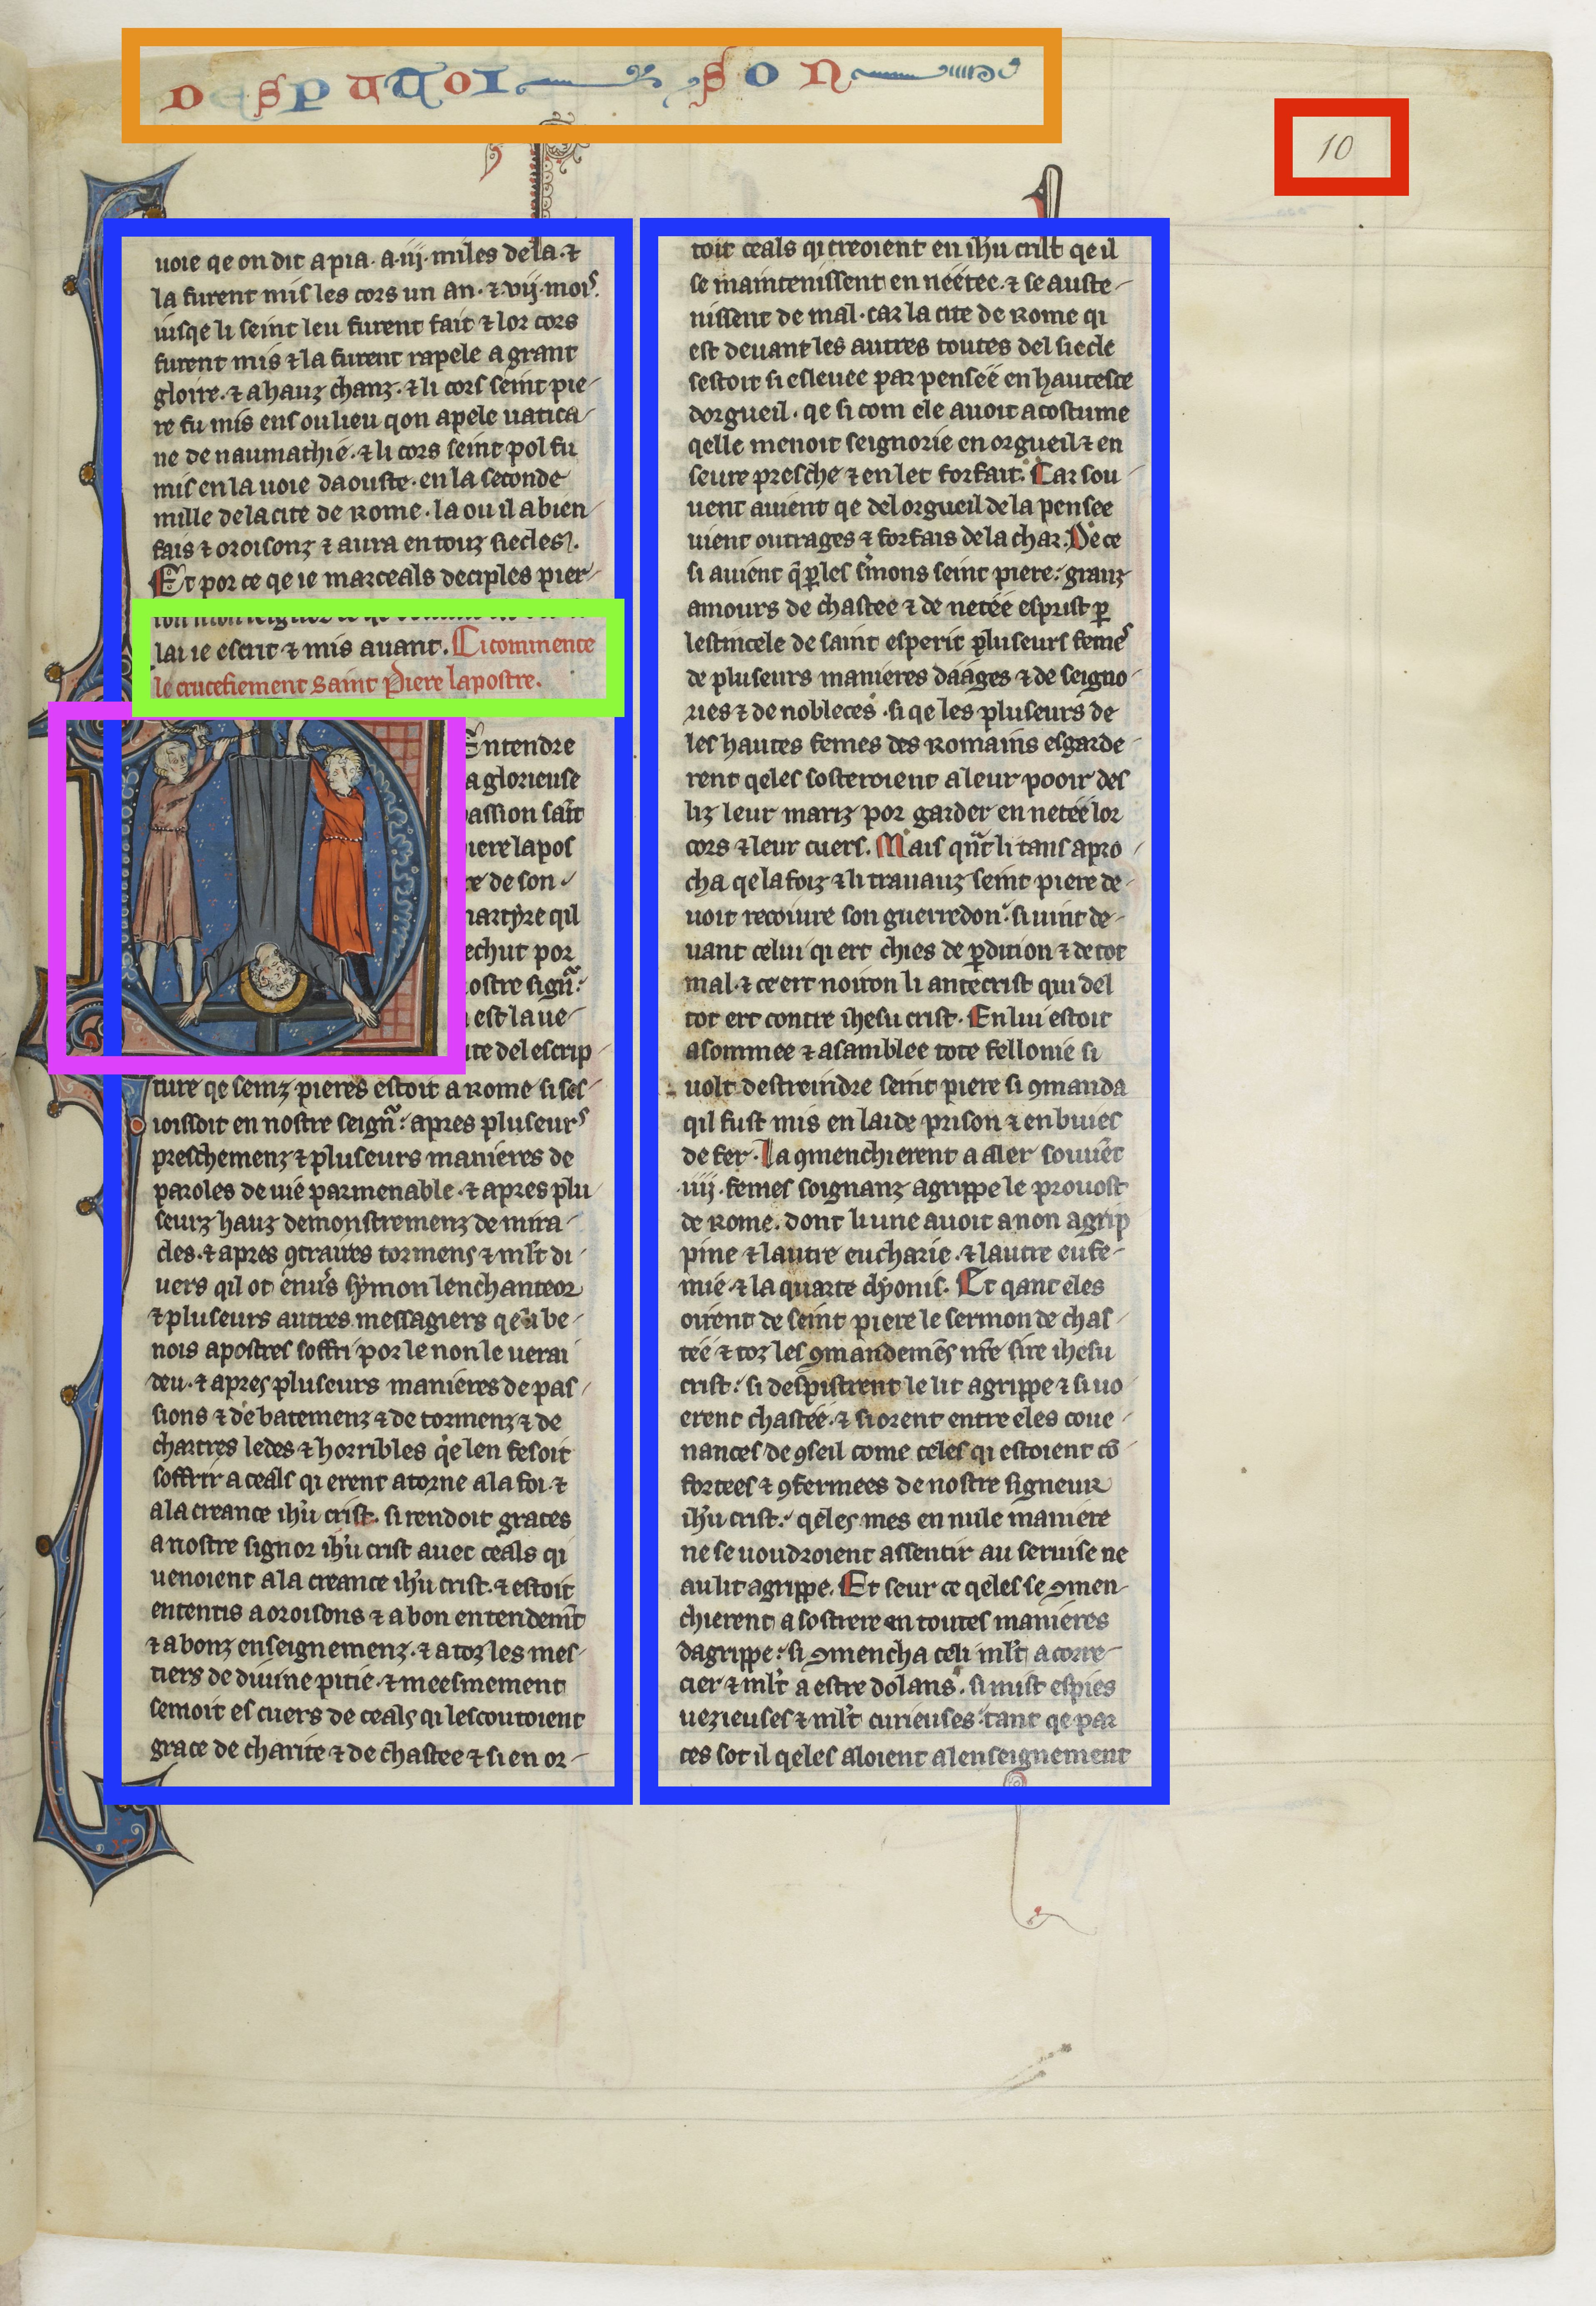 DESPUTOISON
10
uoie qe on dit apia. a .iij. miles de la. ⁊
la furent mis les cors un an. ⁊ .vij. mois.
iusqe li seint leu furent fait ⁊ lor cors
furent mis ⁊ la furent rapele a grant
gloire. ⁊ a hauz chanz. ⁊ li cors seint pie-
re fu mis en son lieu qon apele uatica-
ne de naumathie. ⁊ li cors seint pol fu
mis en la uoie daouste. en la seconde
mille de la cite de rome. la ou il a bien
fais ⁊ oroisonz ⁊ aura en touz siecles.
Et por ce qe ie marceals deciples pier-
lai ie escrit ⁊ mis auant. Ci commence
le crucefiement saint Piere lapostre.
Entendre
la glorieuse
passion sait̄
piere lapos
tre de son
martyre qil
rechut por
nostre sign̄.
est la ue-
rite del escrip
ture qe seinz pieres estoit a rome si ses-
ioissoit en nostre seign̄. apres pluseurs
preschemenz ⁊ pluseurs manieres de
paroles de uie parmenable. ⁊ apres plu
seurz hauz demonstremenz de mira-
cles. ⁊ apres ꝯtraires tormens ⁊ ml̄t di-
uers qil ot enuers symon lenchanteor
⁊ pluseurs autres messagiers qe li be-
nois apostres soffri por le non le uerai
deu. ⁊ apres pluseurs manieres de pas-
sions ⁊ de batemenz ⁊ de tormenz ⁊ de
chartres ledes ⁊ horribles qe len fesoit
soffrir a ceals qi erent atorne a la foi. ⁊
a la creance ih̄u crist. si rendoit graces
a nostre signor ih̄u crist auec ceals qi
uenoient a la creance ih̄u crist. ⁊ estoit
ententis a oroisons ⁊ a bon entendemt̄
⁊ a bonz enseignemenz. ⁊ a toz les mes-
tiers de diuine pitie. ⁊ meesmement
semoit es cuers de ceals qi lescoutoient
grace de charite ⁊ de chastee ⁊ si en or-
toit ceals qi creoient en ih̄u crist qe il
se maintenissent en neetee. ⁊ se auste-
nissent de mal. car la cite de rome qi
est deuant les autres toutes del siecle
sestoit si esleuee par pensee en hautesce
dorgueil. qe si com ele auoit acostume
qelle menoit seignorie en orgueil ⁊ en
seure presche ⁊ en let forfait. Car sou-
uent auient qe del orgueil de la pensee
uient outrages ⁊ forfais de la char. De ce
si auient q̄ ꝑ les s̄mons seint piere. granz
amours de chastee ⁊ de netee esprist ꝑ
lestincele de saint esperit pluseurs femes
de pluseurs manieres daages ⁊ de seigno-
ries ⁊ de nobleces. si qe les pluseurs de
les hautes femes des romains esgarde-
rent qeles sosteroient a leur pooir des
liz leur mariz por garder en netee lor
cors ⁊ leur cuers. Mais qn̄t li tans apro-
cha qe la foiz ⁊ li trauauz seint piere de-
uoit recoiure son guerredon. si uint de-
uant celui qi ert chies de ꝑdition ⁊ de tot
mal. ⁊ ce ert noiron li antecrist qui del
tot ert contre ihesu crist. En lui estoit
asommee ⁊ asamblee tote fellonie si
uolt destreindre seint piere si ꝯmanda
qil fust mis en laide prison ⁊ en buies
de fer. La ꝯmenchierent a aler souuēt
.iiij. femes soignanz agrippe le prouost
de rome. dont li une auoit a non agrip
pine ⁊ lautre eucharie. ⁊ lautre eufe-
mie. ⁊ la quarte dyonis. Et qant eles
oirent de seint piere le sermon de chas-
tee ⁊ toz les ꝯmandemēs nr̄e sire ihesu
crist. si despistrent le lit agrippe ⁊ si uo
erent chastee. ⁊ si orent entre eles coue-
nances de ꝯseil come celes qi estoient cō-
fortees ⁊ ꝯfermees de nostre signeur
ih̄u crist. qeles mes en nule maniere
ne se uoudroient assentir au seruise ne
au lit agrippe. Et seur ce qeles se ꝯmen-
chierent a sostrere en toutes manieres
dagrippe. si ꝯmencha celi ml̄t a corre-
cier ⁊ ml̄t a estre dolans. si mist espies
uezieuses ⁊ ml̄t curieuses. tant qe par
ces sot il qeles aloient al enseignement